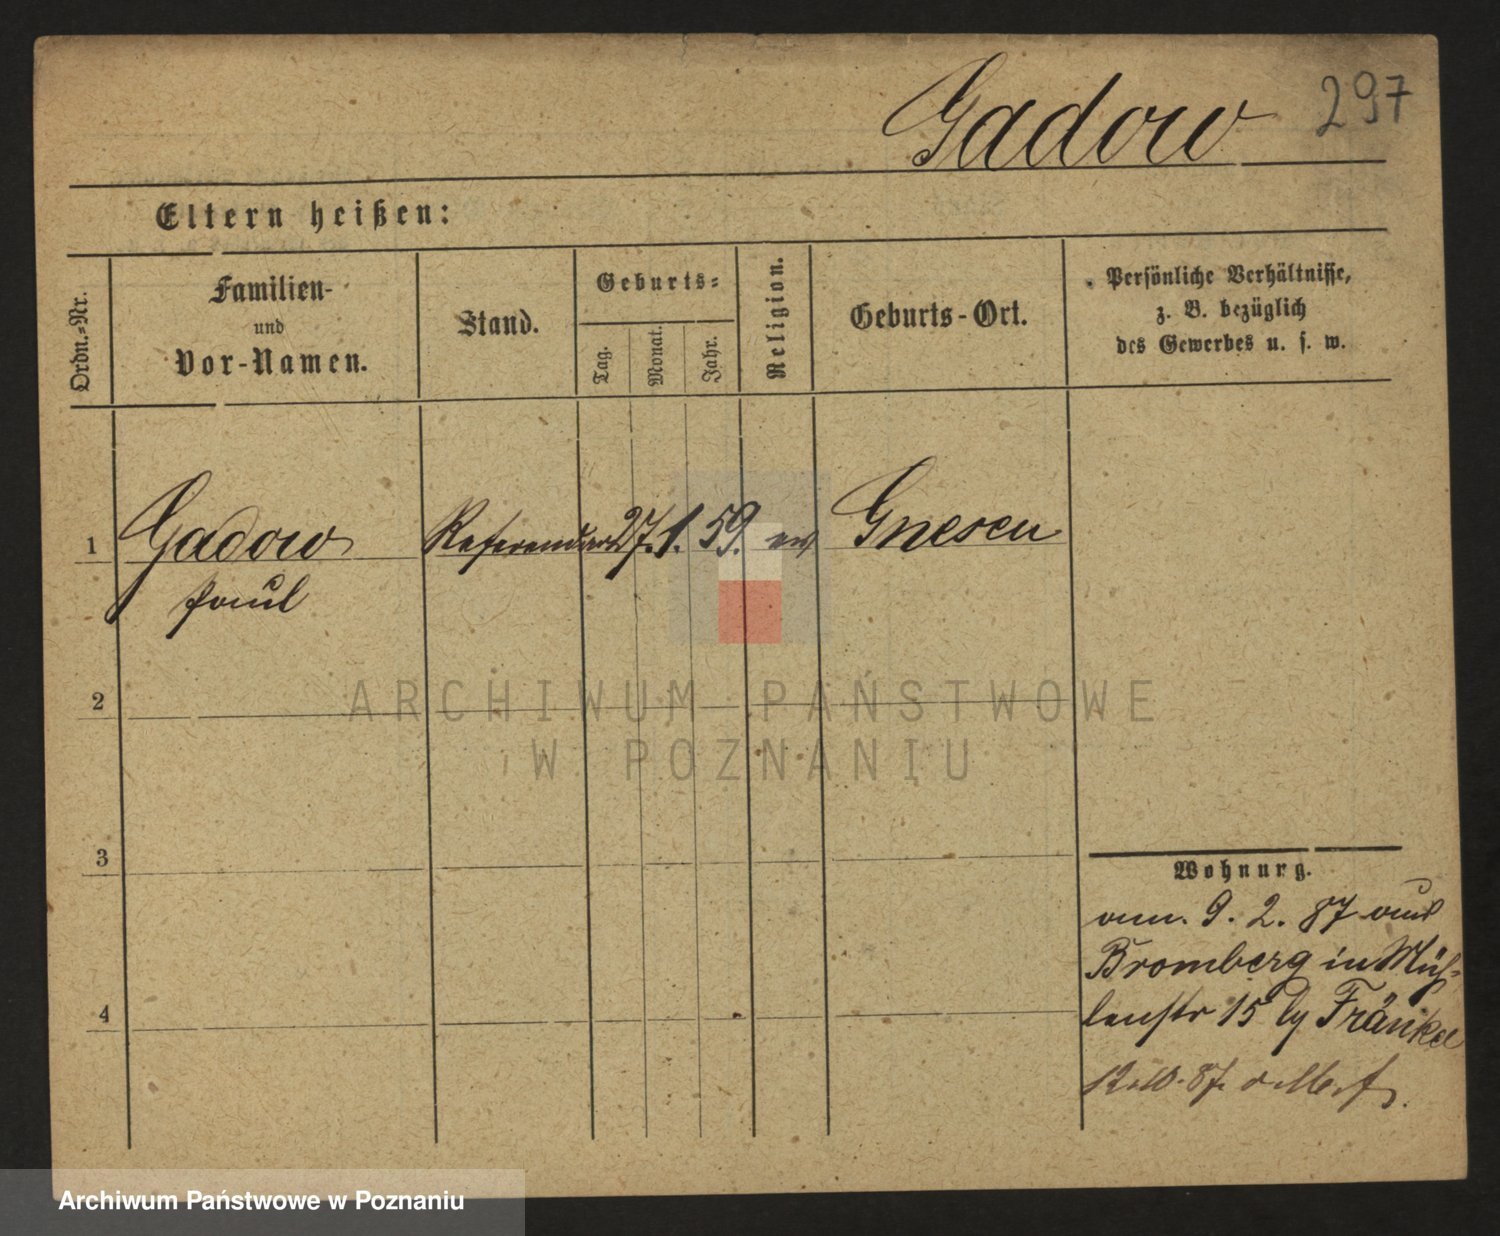 Gadow 297
Eltern heißen:
Ordn.-Nr. Familien- und Vor-Namen. Stand. Geburts- Tag. Monat. Jahr. Religion. Geburts-Ort. Persönliche Verhältnisse, z. B. bezüglich des Gewerbes u. s. w.
1 Gadow Referendar 27. 1. 59. ev Gnesen
Paul
ARCHIWUM PAŃSTWOWE
W POZNANIU
2
3
4
Wohnung.
am. 9. 2. 87 aus
Bromberg in Müh-
lenstr 15 by Fränkel
87.
Archiwum Państwowe w Poznaniu